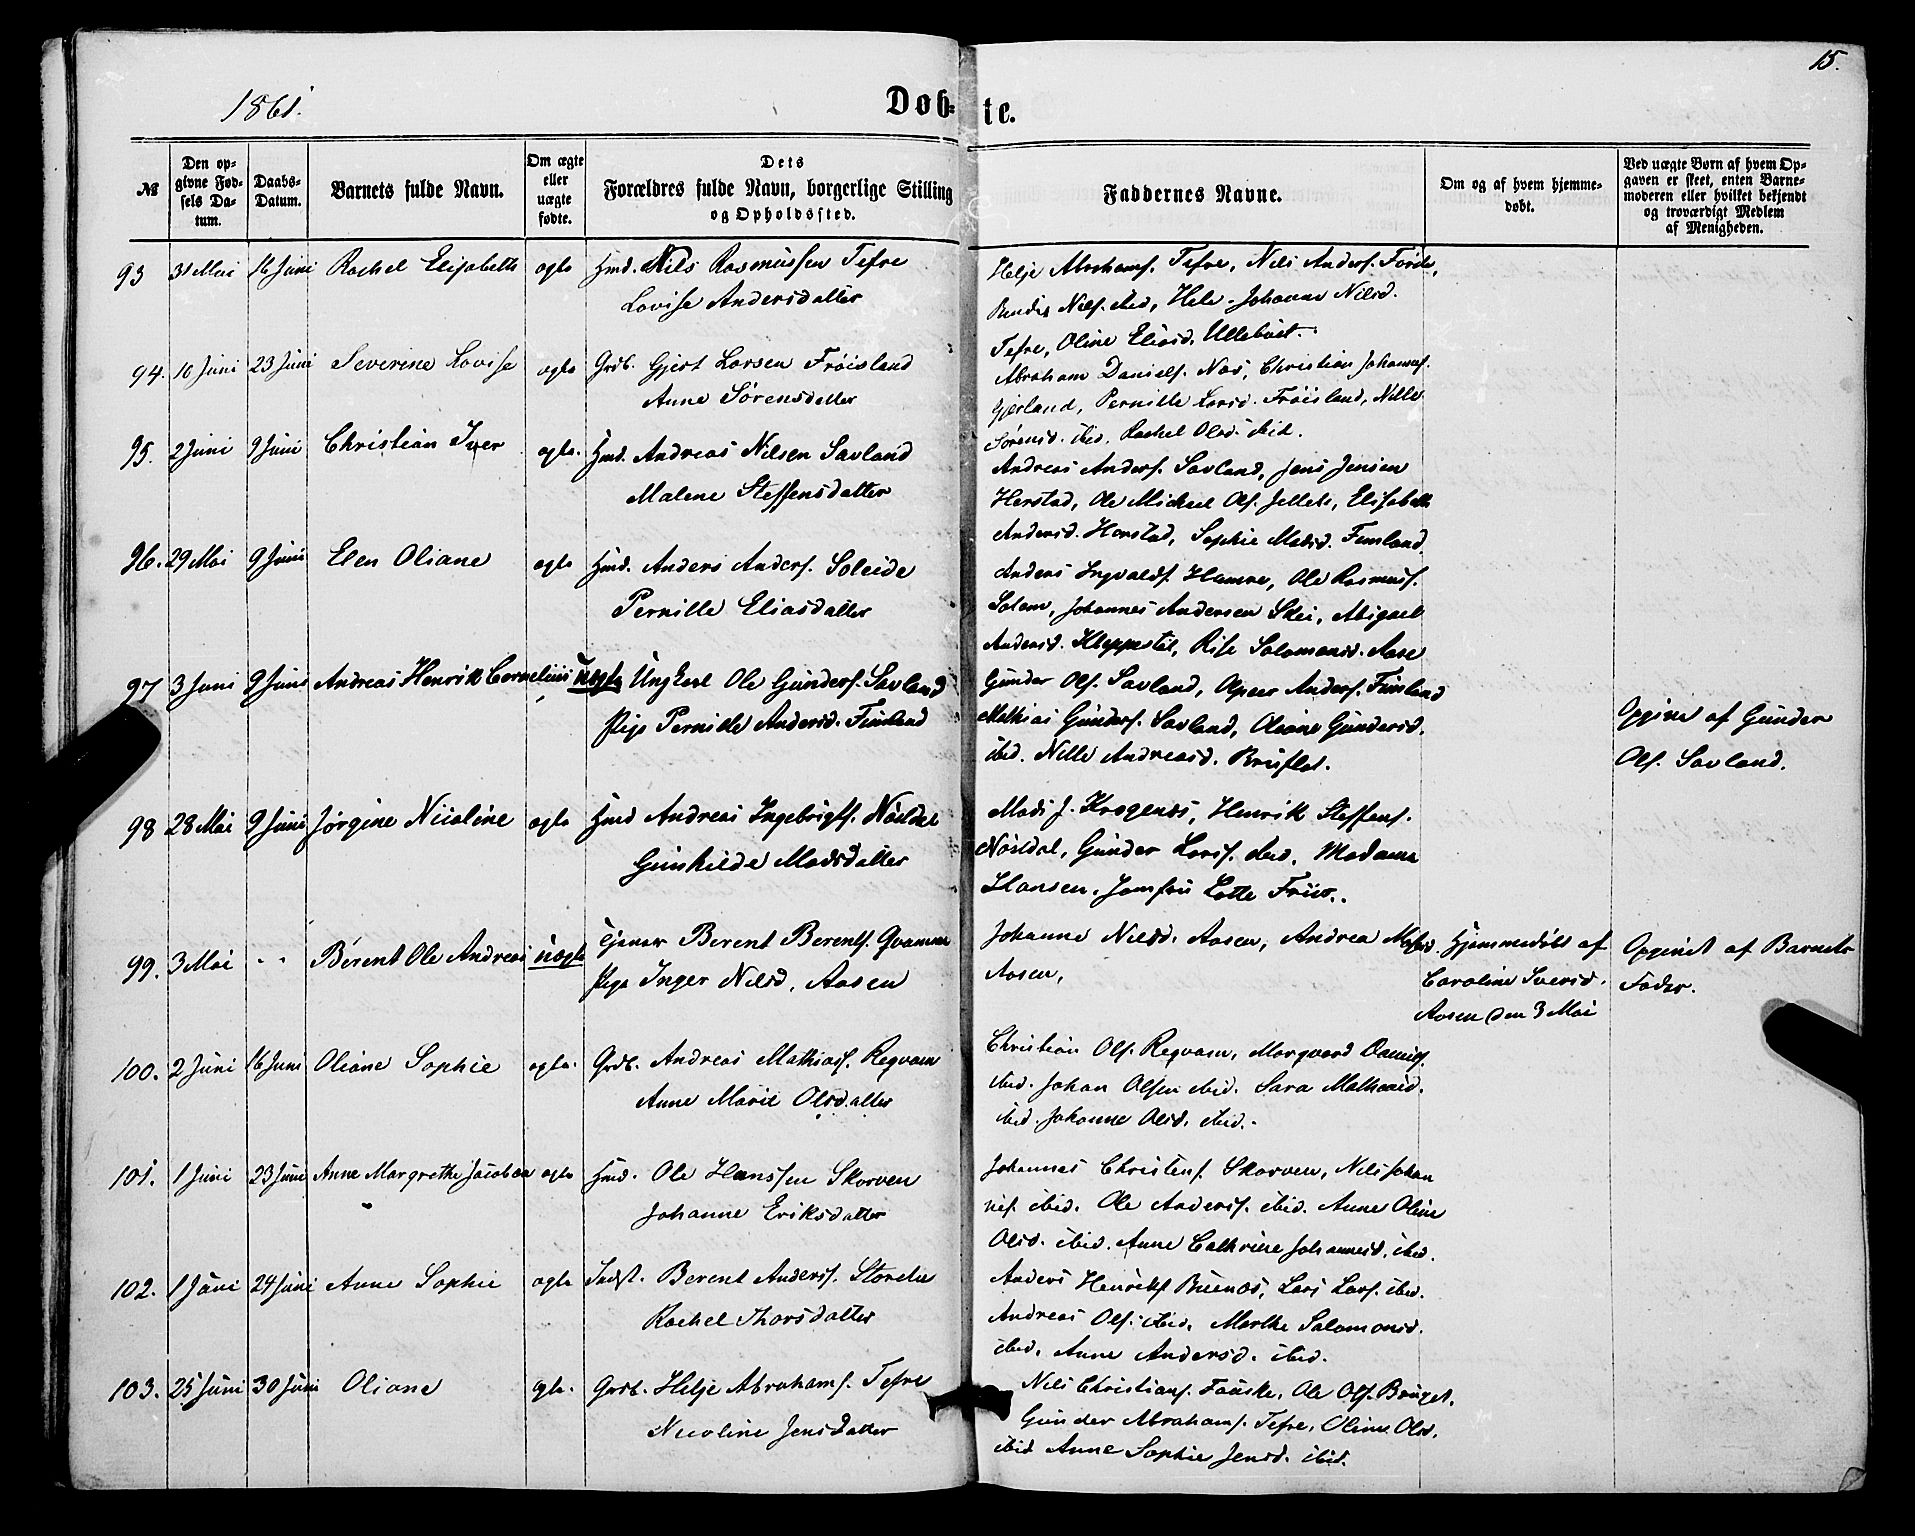 15.
1861.
Døb- te.
№
Den opgivne Fødsels Datum.
Daabs-Datum.
Barnets fulde Navn.
Om ægte eller uægte fødte.
Dets Forældres fulde Navn, borgerlige Stilling og Opholdssted.
Faddernes Navne.
Om og af hvem hjemmedøbt.
Ved uægte Børn af hvem Opgaven er skeet, enten Barnemoderen eller hvilket bekjendt og troværdigt Medlem af Menigheden.
93 31 Mai 16 Juni Rachel Elisabeth ægte Hmd. Nils Rasmussen Tefre
Lovise Andersdatter
Helje Abrahams. Tefre, Nils Anders. Førde,
Nils. ibid, Johanne Nilsd.
Tefre, Oline Eliasd. Ullebust.
94. 10 Juni 23 Juni Severine Lovise ægte Grdb. Gjert Larsen Frøisland
Anne Sørensdatter
Abraham Daniels. Næs, Christian Johannes.
Gjerland, Pernille Larsd. Frøisland, Nille
Sørensd. ibid, Rachel Olsd. ibid.
95. 2 Juni 9 Juni Christian Iver ægte. Hmd. Andreas Nilsen Savland
Malene Steffensdatter
Andreas Anders. Savland, Jens Jensen
Herstad, Ole Michael Ols. Elisabeth
Andersd. Herstad, Sophie Madsd. Fimland
96. 29 Mai 9 Juni Elen Oliane ægte Hmd. Anders Anders. Soleide
Pernille Eliasdatter
Anders Ingvalds. Hamre, Ole Rasmus.
Johannes Andersen Skei, Abigael
Andersd. Kleppestøl, Salomonsd. Aase
97 3 Juni 9 Juni Andreas Henrik Cornelius uægte Ungkarl Ole Gunders. Savland
Pige Pernille Andersd. Fimland
Gunder Ols. Savland, Anders. Fimland
Mathias Gunders. Savland, Oliane Gundersd.
ibid. Nille Andreasd. Bruflot.
Opgivet af Gunder
Ols. Savland.
98 28 Mai 9 Juni Jørgine Nicoline ægte Hmd Andreas Ingebrigts. Nösdal
Gunhilde Madsdatter
Mads J. Krogenæs, Henrik Steffens.
Nösdal, Gunder Lars. ibid, Madame
Hansen, Jomfru Lotte Friis.
99. 3 Mai - - Berent Ole Andreas uægte Tjener Berent Berents. Qvamme
Pige Inger Nilsd. Aasen
Johanne Nilsd. Aasen, Andrea
Aasen,
Hjemmedöbt af
Caroline Iversd.
Aasen den 3 Mai
Opgivet af Barnets
Fader.
100. 2 Juni 16 Juni Oliane Sophie ægte. Grdb. Andreas Mathias. Reqvam
Anne Marie Olsdatter
Christian Ols. Reqvam, Marqvard Daniels.
ibid. Johan Olsen ibid. Sara Mathiasd.
ibid. Johanne Olsd. ibid.
101. 1 Juni 23 Juni Anne Margrethe Jacobea ægte Hmd. Ole Hanssen Skorven
Johanne Eriksdatter
Johannes Christens. Skorven, Nils Johan
nes. ibid. Ole Anders. ibid. Anne Oline
Olsd. ibid. Anne Cathrine Johannesd. ibid.
102. 1 Juni 24 Juni Anne Sophie ægte Indst. Berent Anders. Storelie
Rachel Thorsdatter
Anders Henriks. Buenæs, Lars Lars. ibid.
Andreas Ols. ibid. Marthe Salomonsd.
ibid, Anne Andersd. ibid.
103. 25 Juni 30 Juni Oliane ægte. Grdb. Helje Abrahams. Tefre
Nicoline Jensdatter
Nils Christians. Fauske, Ole Ols.
Gunder Abrahams. Tefre, Oline Olsd.
ibid Anne Sophie Jensd. ibid.